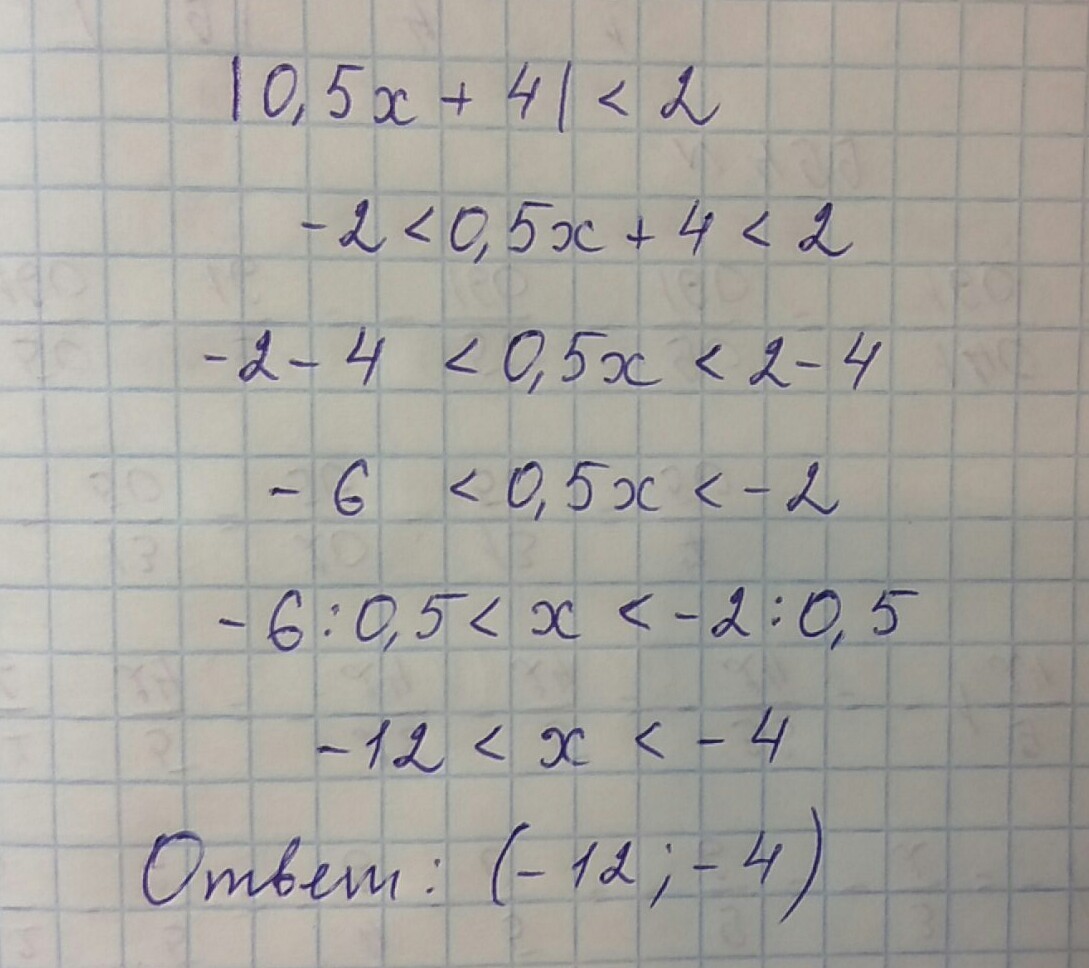 |0,5x + 4| < 2
-2 < 0,5x + 4 < 2
-2 - 4 < 0,5x < 2 - 4
-6 < 0,5x < -2
-6 : 0,5 < x < -2 : 0,5
-12 < x < -4
Ответ: (-12; -4)